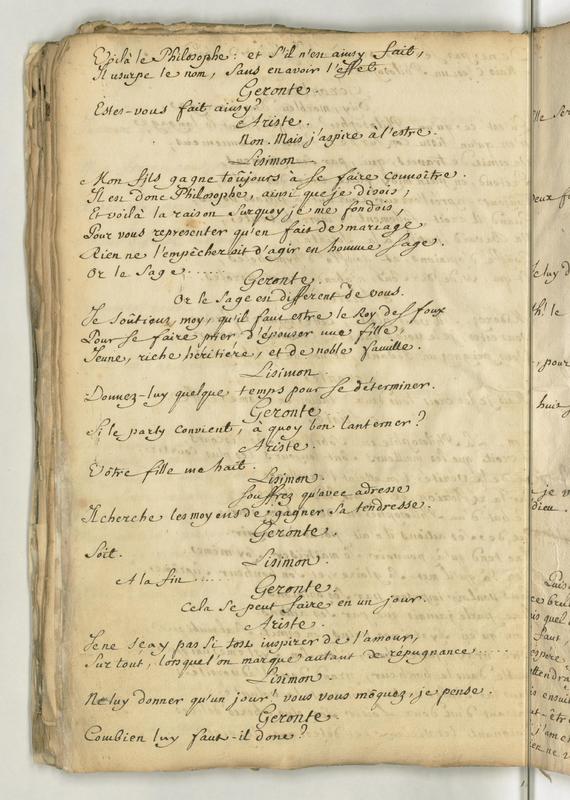 Voilà le Philosophe: et s'il n'est ainsy fait,
Il usurpe le nom, sans en avoir l'effet.
Geronte.
Estes-vous fait ainsy?
Ariste.
Non. Mais j'aspire à l'estre.
Lisimon
Mon fils gagne toûjours à se faire connoître.
Il est donc Philosophe, ainsi que je disois;
Et voilà la raison surquoy je me fondois,
Pour vous representer qu'en fait de mariage
Rien ne l'empêcheroit d'agir en homme sage.
Or le sage......
Geronte.
Or le sage est different de vous.
Je soûtiens, moy, qu'il faut estre le Roy des foux
Pour se faire prier d'épouser une fille,
Jeune, riche héritiere, et de noble famille.
Lisimon.
Donnez-luy quelque temps pour se déterminer.
Geronte
Si le party convient, à quoy bon lanterner?
Ariste.
Vôtre fille me hait.
Lisimon.
Souffrez qu'avec adresse
Il cherche les moyens de gagner sa tendresse.
Geronte.
Soit.
Lisimon.
A la fin......
Geronte.
Cela se peut faire en un jour.
Ariste.
Je ne sçay pas si tost inspirer de l'amour,
Sur tout, lorsque l'on marque autant de répugnance......
Lisimon.
Ne luy donner qu'un jour! vous vous môquez, je pense.
Geronte
Combien luy faut-il donc?